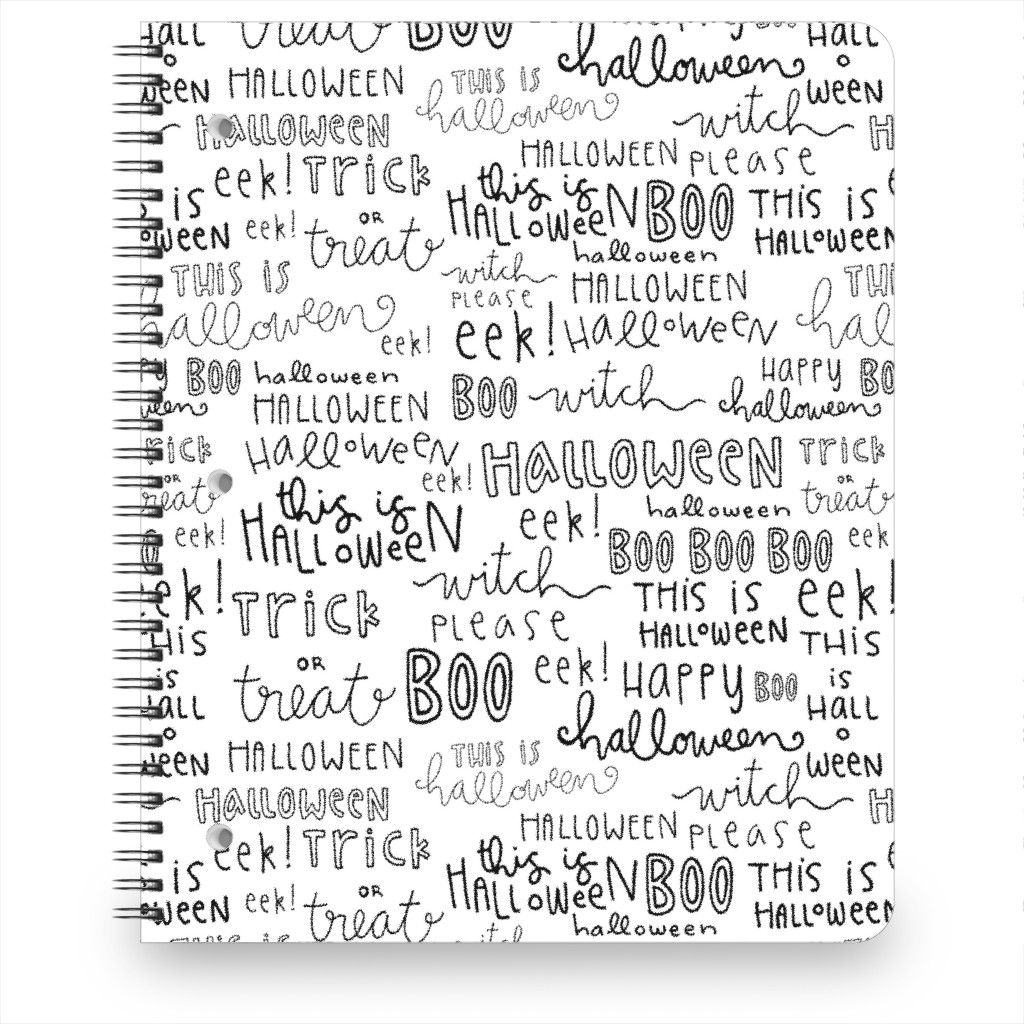 HALL
treat
BOO
HALL
o
WEEN
HALLOWEEN
THIS IS
halloween
halloween
o
WEEN
HALLOWEEN
witch
HALLOWEEN
PLEASE
eek!
TRICK
this is
HALLOWEEN
BOO
THIS IS
HALLOWEEN
IS
WEEN
eek!
OR
treat
halloween
THIS IS
halloween
witch
PLEASE
HALLOWEEN
THI
hal
eek!
eek!
HALLOWEEN
BOO
halloween
HALLOWEEN
BOO
witch
HAPPY
halloween
BO
RICK
OR
treat
HALLOWEEN
eek!
HALLOWEEN
TRICK
OR
treat
eek!
this is
HALLOWEEN
eek!
halloween
BOO BOO BOO
eek
ek!
TRICK
witch
PLEASE
THIS IS
HALLOWEEN
eek!
HIS
IS
ALL
o
WEEN
OR
treat
BOO
eek!
HAPPY
halloween
BOO
THIS
IS
HALL
o
WEEN
HALLOWEEN
THIS IS
halloween
HALLOWEEN
witch
HALLOWEEN
PLEASE
eek!
TRICK
this is
HALLOWEEN
BOO
THIS IS
HALLOWEEN
IS
WEEN
eek!
OR
treat
halloween